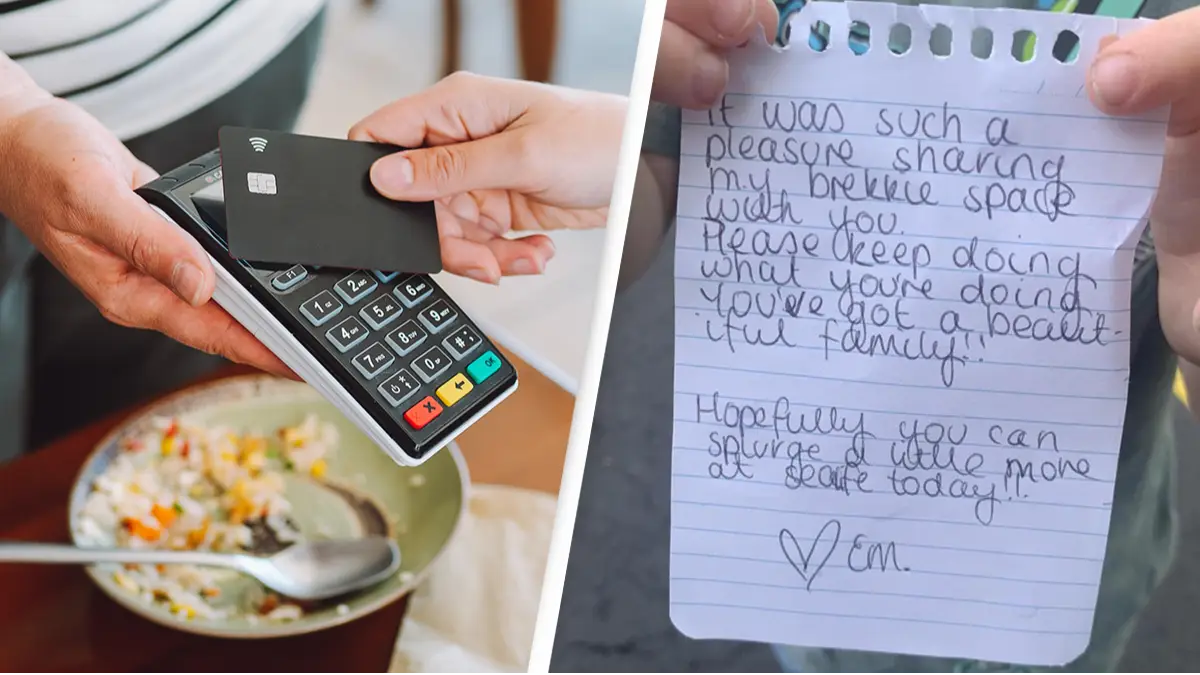 F1
1 2 ABC
4 5 6
7 8 9
0 #
OK
It was such a
pleasure sharing
my brekkie space
with you.
Please keep doing
what you're doing
You've got a beaut-
iful family!!
Hopefully you can
splurge a little more
at today!!
♡ Em.